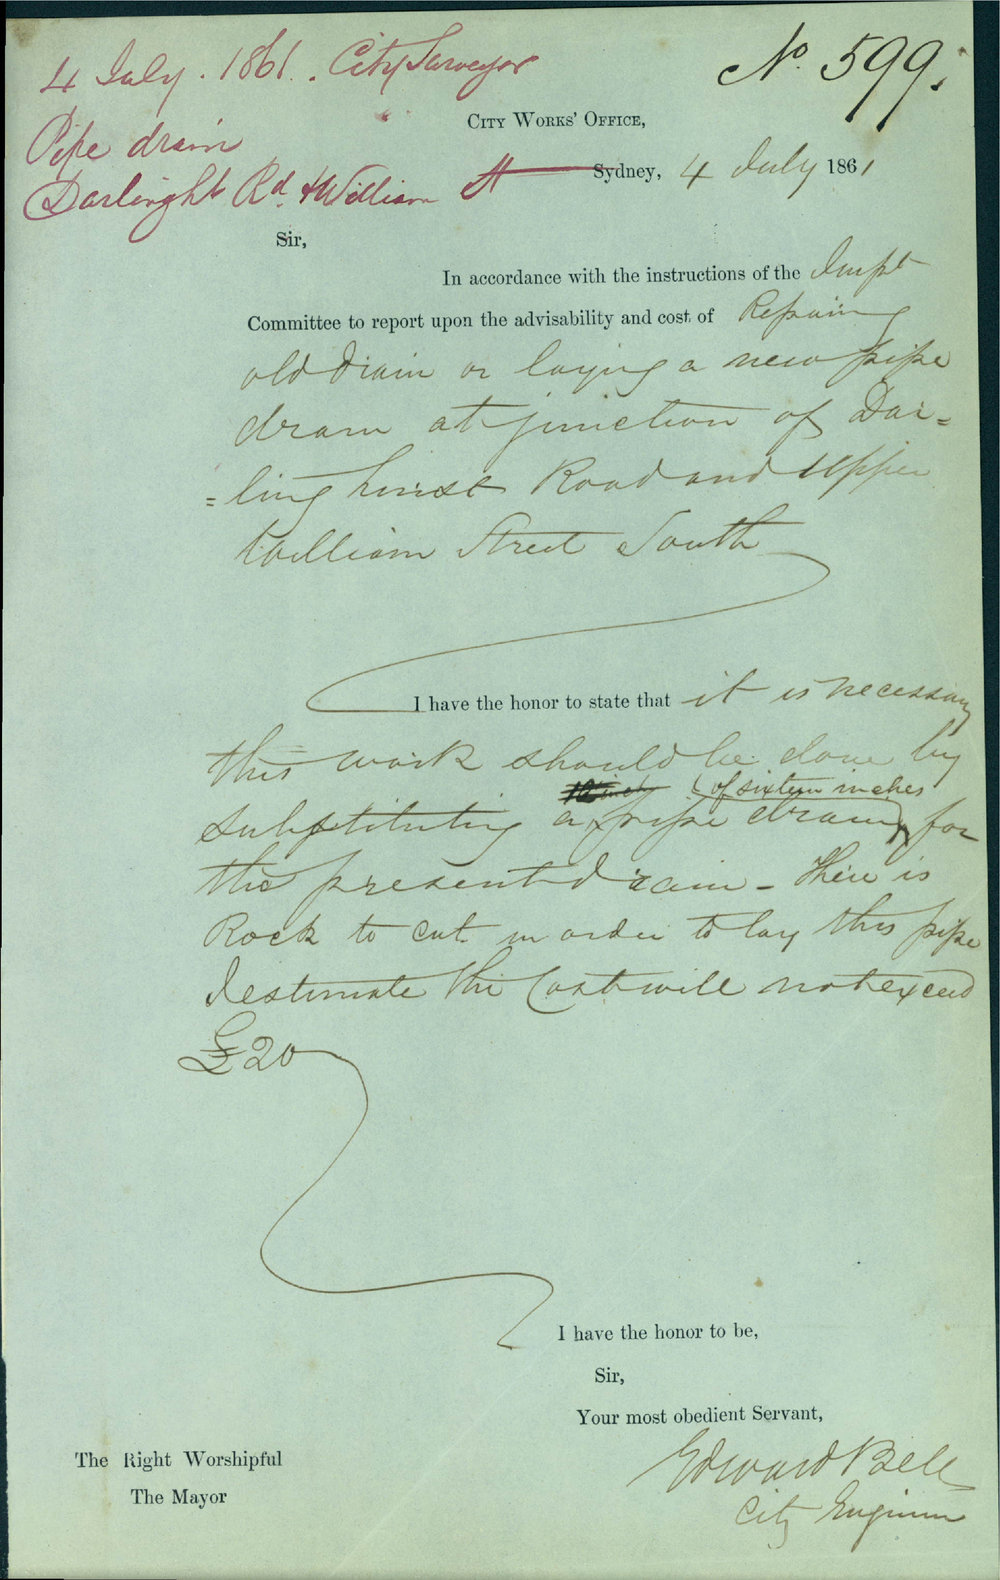 4 July. 1861. City Surveyor
No. 599.
Pipe drain
Darlinght Rd. & William St
City Works' Office,
Sydney, 4 July 1861
Sir,
In accordance with the instructions of the Impt
Committee to report upon the advisability and cost of Repairing
old drain or laying a new pipe
drain at junction of Dar=
=linghurst Road and Upper
William Street South
I have the honor to state that it is necessary
this work should be done by
12 inch of sixteen inches
substituting a pipe drain for
the present drain - There is
Rock to cut in order to lay this pipe
I estimate the Cost will not exceed
£20
I have the honor to be,
Sir,
Your most obedient Servant,
Edward Bell
City Engineer
The Right Worshipful
The Mayor